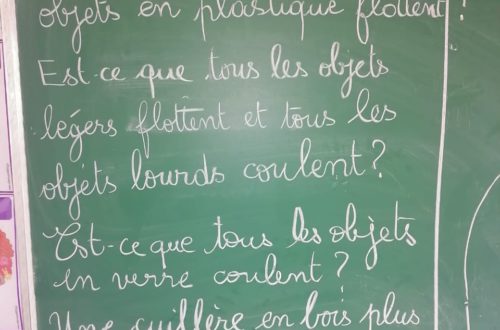 objets en plastique flottent ?
Est-ce que tous les objets
légers flottent et tous les
objets lourds coulent ?
Est-ce que tous les objets
en verre coulent ?
Une cuillère en bois plus